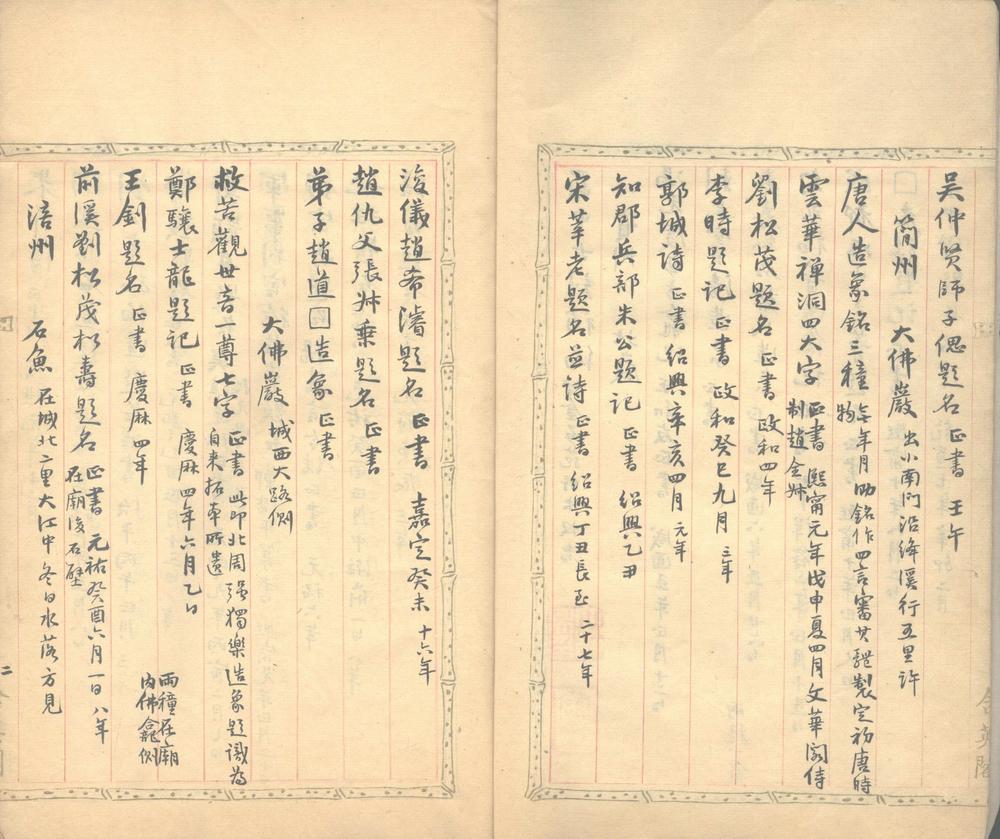 吳仲賢師子偲題名 正書 壬午
簡州 大佛巖 出小南門沿絳溪行五里許
唐人造象銘三種 無年月 內銘作四言審其體製定初唐時物
雲華禪洞四大字 正書 熙甯元年戊申夏四月文華閣侍制趙全
劉松茂題名 正書 政和四年
李時題記 正書 政和癸巳九月 三年
郭城詩 正書 紹興辛亥四月 元年
知郡兵部朱公題記 正書 紹興乙丑
宋莘老題名並詩 正書 紹興丁丑長至 二十七年
浚儀趙希濬題名 正書 嘉定癸未 十六年
趙仇父張𠦑乘題名 正書
弟子趙道□造象 正書
大佛巖 城西大路側
救苦觀世音一尊七字 正書 此即北周强獨樂造象題識為自來拓本所遺
鄭驤士龍題記 正書 慶厤四年六月乙日
王釗題名 正書 慶厤四年
兩種在廟內佛龕側
前溪劉松茂松壽題名 正書 元祐癸酉六月一日 八年 在廟後石壁
涪州 石魚 在城北二里大江中冬日水落方見
二